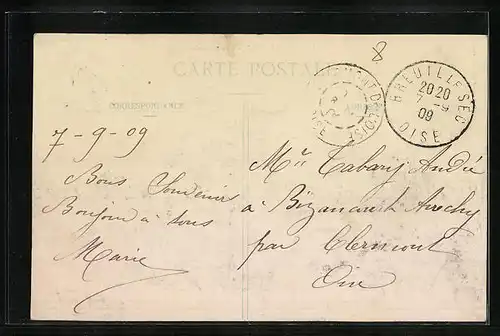 8
CARTE POSTALE
CORRESPONDANCE
BREUIL-LE-SEC
20 20
7 - 9
09
OISE
CLERMONT DE L'OISE
7-9-09
Bons Souvenir
Bonjour à tous
Marie
Mr Tabary André
à Bizancourt Avrechy
par Clermont
Oise